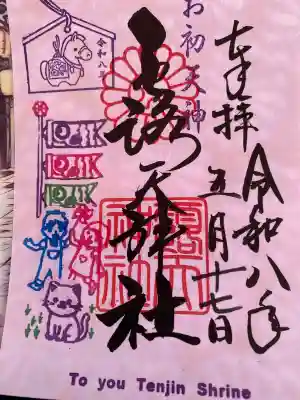 奉拝
令和八年
五月十七日
お初天神
露天神社
令和八年
To you Tenjin Shrine